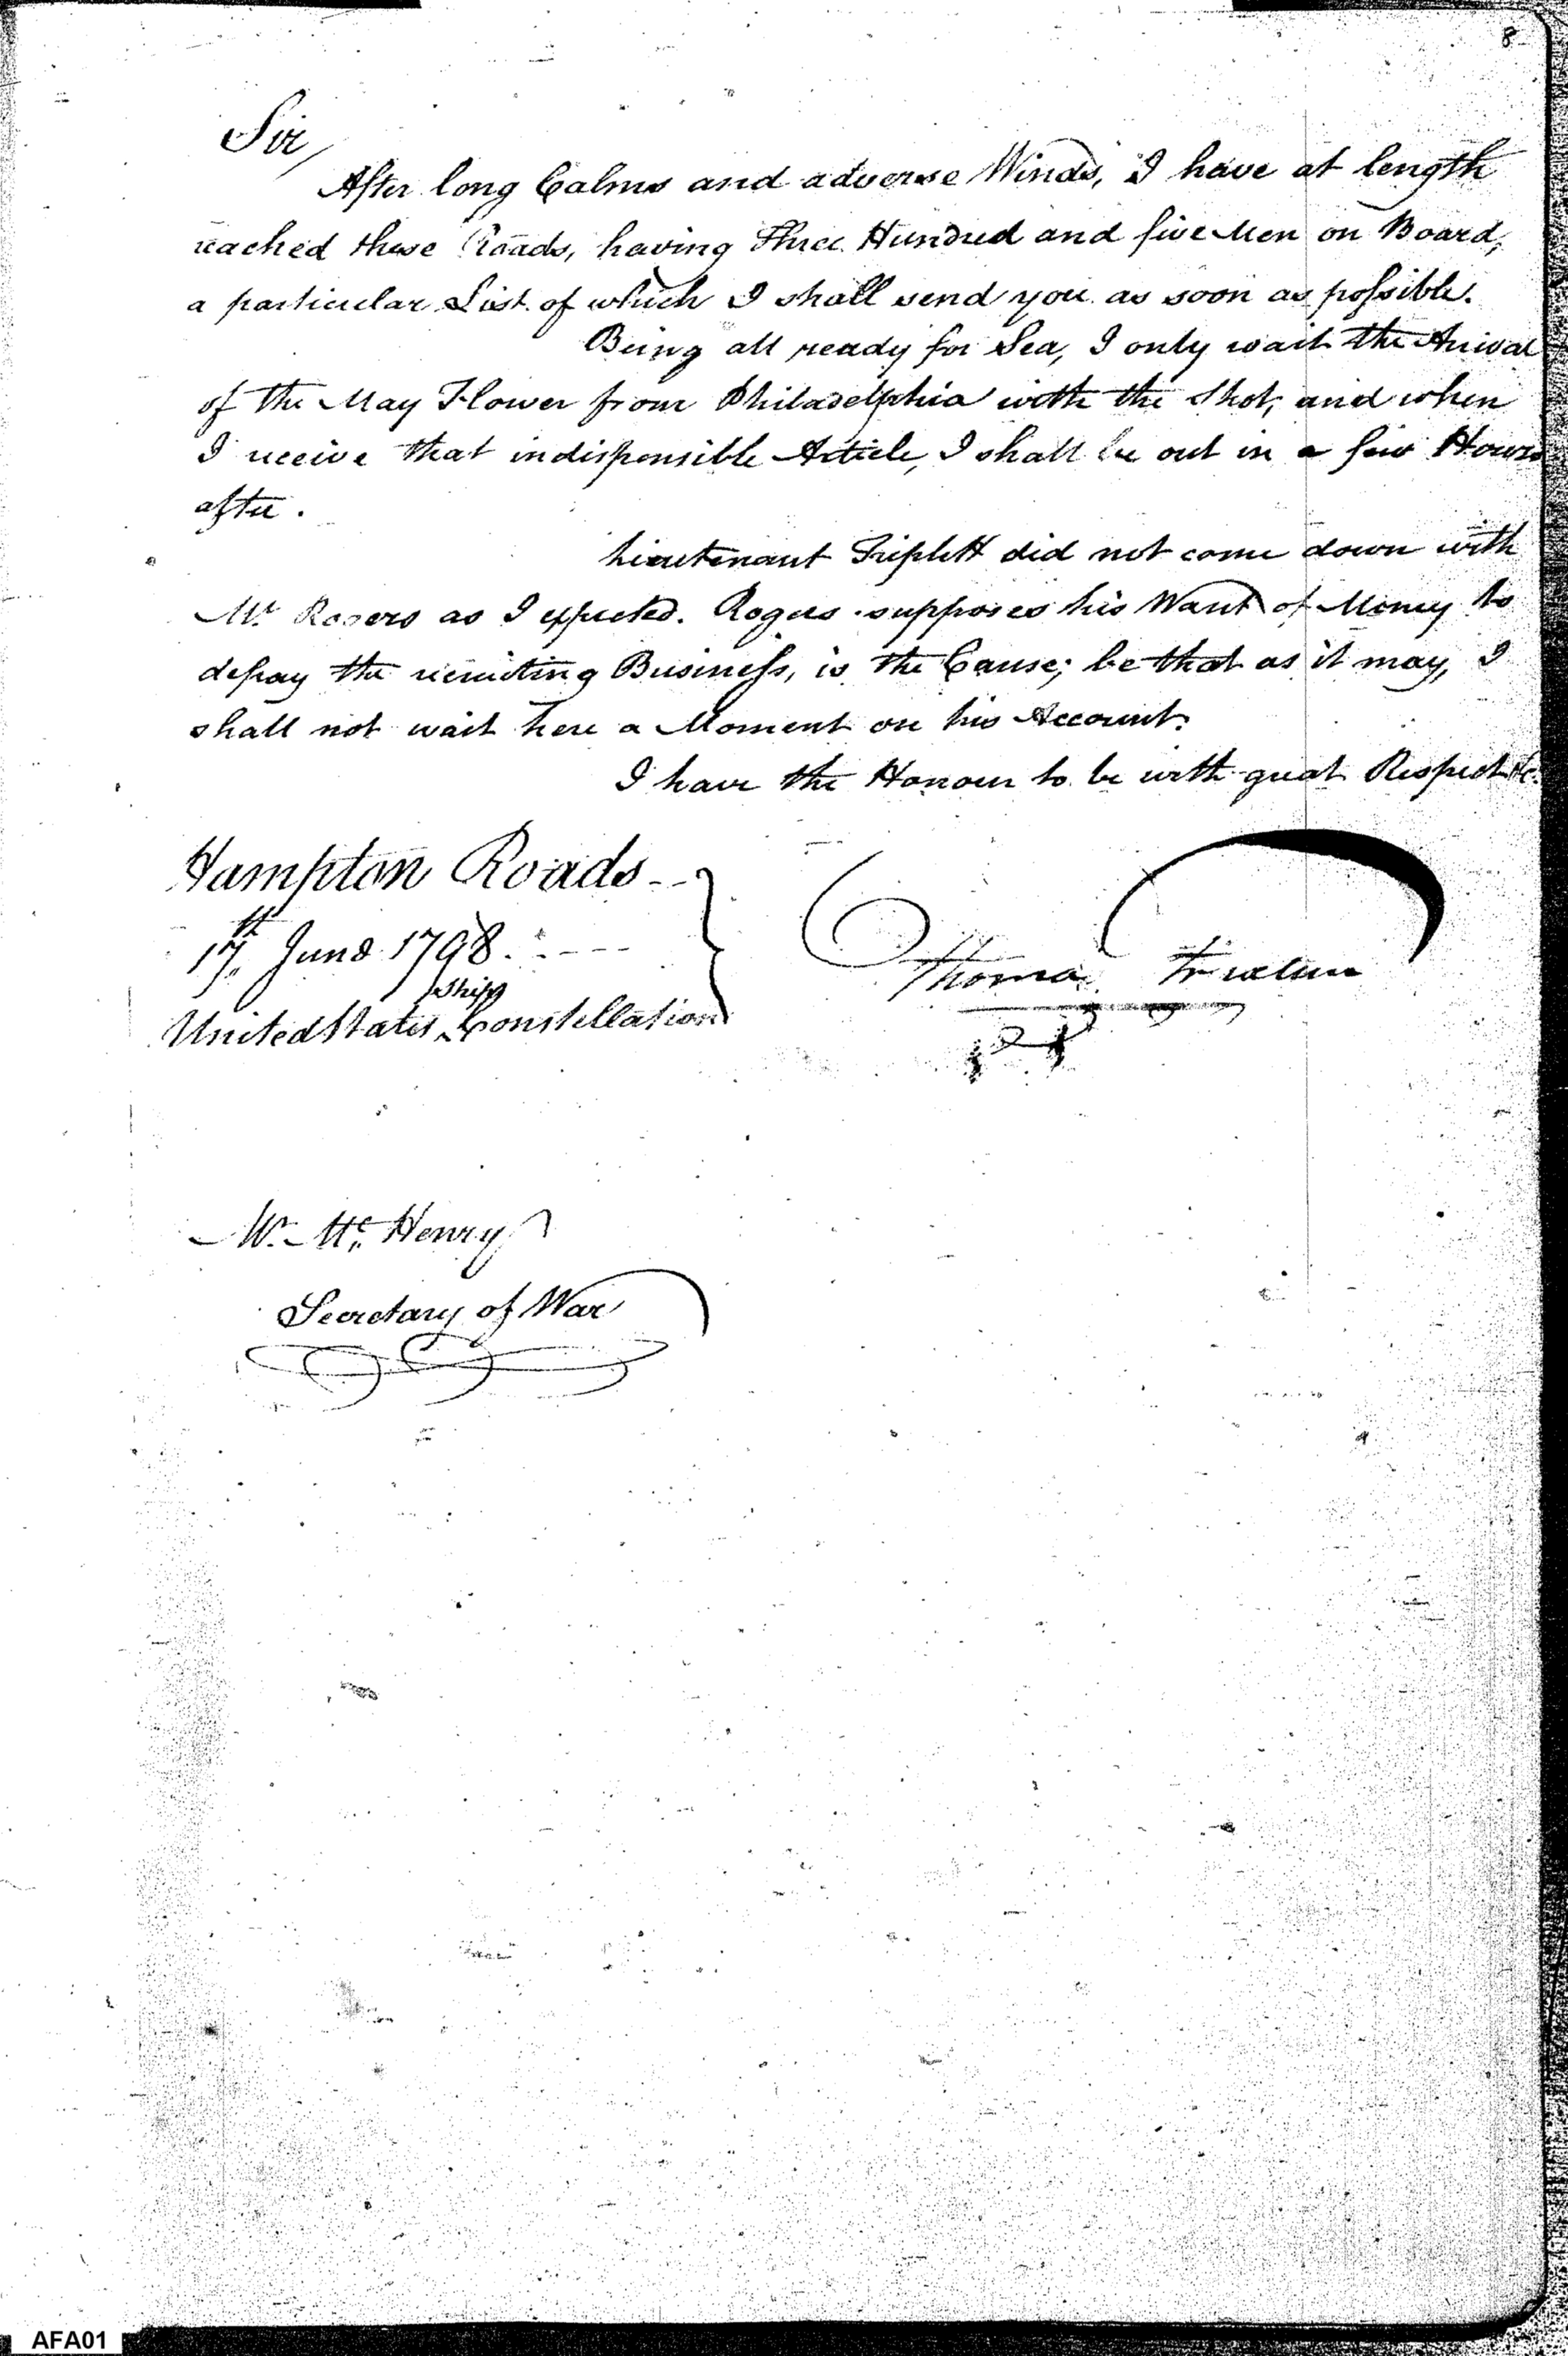 8
Sir,
After long Calms and adverse Winds, I have at length
reached these Roads, having Three Hundred and five Men on Board,
a particular List of which I shall send you as soon as possible.
Being all ready for Sea, I only wait the Arival
of the May Flower from Philadelphia with the Shot, and when
I receive that indispensible Article, I shall be out in a few Hours
after.
Lieutenant Triplett did not come down with
Mr. Rogers as I expected. Rogers supposes his Want of Money to
defray the recruiting Business, is the Cause; be that as it may, I
shall not wait here a Moment on his Account.
I have the Honour to be with great Respect &c.
Hampton Roads
17th June 1798.
Ship
United States Constellation
Thomas Truxtun
Mr. Mc. Henry
Secretary of War
AFA01